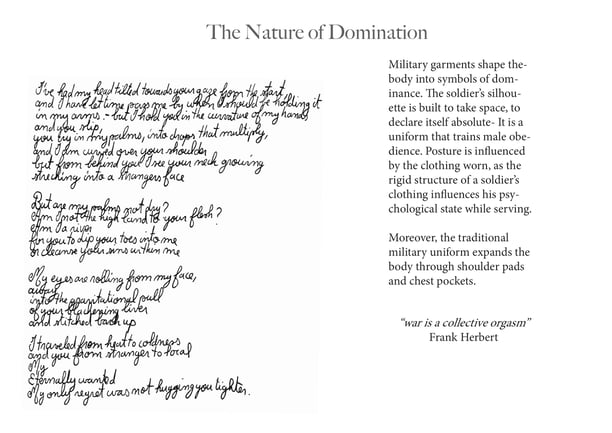 The Nature of Domination
I've had my head tilted towards your gaze from the start,
and I have let time pass me by when I should be holding it
in my arms - but I hold you in the curvature of my hands
and you slip,
you cry in my palms, into drops that multiply,
and I am curved over your shoulder
but from behind you I see your neck growing
streching into a strangers face
But are my palms not dry?
Am I not the high land to your flesh?
Am I a river
for you to dip your toes into me
or cleanse your sins within me
My eyes are rolling from my face,
away
into the gravitational pull
of your blackening liver
and stitched back up
I traveled from heat to coldness
and you from stranger to local
My
Eternally wanted
My only regret was not hugging you tighter.
Military garments shape the-
body into symbols of dom-
inance. The soldier's silhou-
ette is built to take space, to
declare itself absolute- It is a
uniform that trains male obe-
dience. Posture is influenced
by the clothing worn, as the
rigid structure of a soldier's
clothing influences his psy-
chological state while serving.
Moreover, the traditional
military uniform expands the
body through shoulder pads
and chest pockets.
"war is a collective orgasm"
Frank Herbert